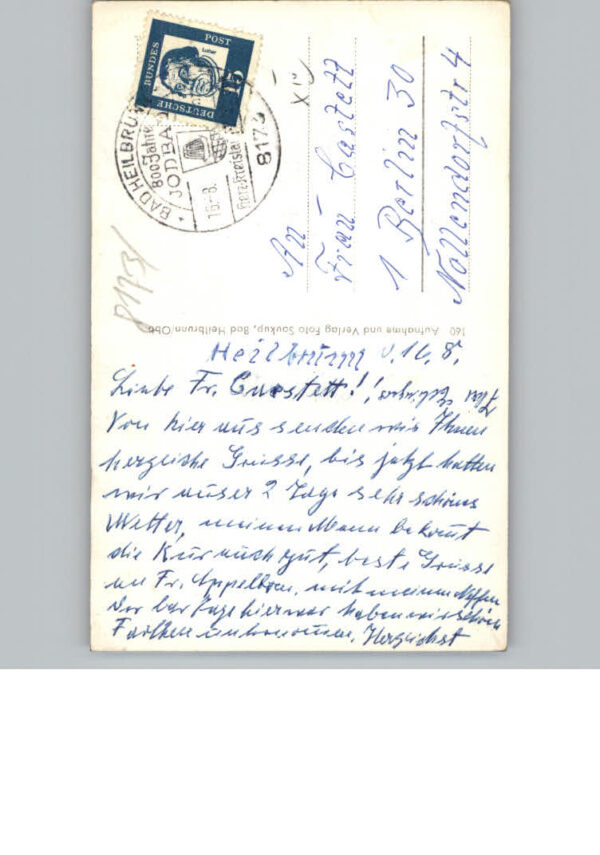 DEUTSCHE BUNDESPOST
15
Luther
BAD HEILBRUNN
800 Jahre
JODBAD
16.-8.
8173
An
Frau Castett
1 Berlin 30
Nollendorfstr 4
8173
160 Aufnahme und Verlag Foto Saukup, Bad Heilbrunn/Obb
Heilbrunn 16. 8.
Liebe Fr. Castett!
Von hier aus senden wir Ihnen
herzliche Grüsse, bis jetzt hatten
wir auser 2 Tage sehr schönes
Wetter, meinen Mann bekomt
die Kur auch gut, beste Grüsse
an Fr. mit meinem Neffen
der Tage hier war haben wir schöne
Herzlichst